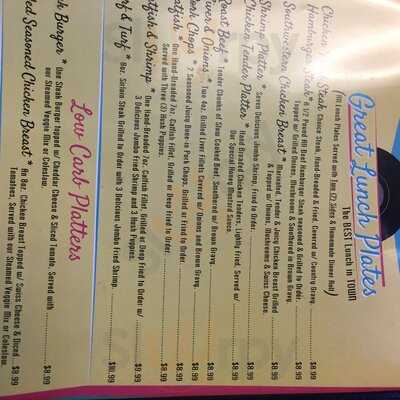 Great Lunch Plates
The BEST Lunch in TOWN
(All Lunch Plates Served with Two (2) Sides & Homemade Dinner Roll)
Steak Choice Steak, Hand-Breaded & Fried, Covered w/ Country Gravy. $8.99
Chicken
Hamburger Steak * A 1/2 Pound All Beef Hamburger Steak seasoned & Grilled to Order.
Topped w/ Grilled Onions, Mushrooms & Smothered in Brown Gravy. $8.99
Southwestern Chicken Breast * Marinated, Tender & Juicy Chicken Breast Grilled
& Topped w/ Onions, Mushrooms & Swiss Cheese. $8.99
Shrimp Platter * Seven Delicious Jumbo Shrimp. Fried to Order. $8.99
Chicken Tender Platter * Hand Breaded Chicken Tenders, Lightly Fried. Served w/
Our Special Honey Mustard Sauce. $8.99
Roast Beef * Tender Chunks of Slow Cooked Beef, Smothered w/ Brown Gravy. $8.99
Liver & Onions * Two 4oz. Grilled Liver Fillets Covered w/ Onions and Brown Gravy. $8.99
Pork Chops * 2 Seasoned Juicy Bone-in Pork Chops. Grilled or Fried to Order. $8.99
Catfish * One Hand-Breaded 7oz. Catfish Fillet. Grilled or Deep Fried to Order.
Served with Three (3) Hush Puppies. $8.99
Catfish & Shrimp * One Hand-Breaded 7oz. Catfish Fillet, Grilled or Deep Fried to Order w/
3 Delicious Jumbo Fried Shrimp and 3 Hush Puppies. $9.99
Surf & Turf * 8oz. Sirloin Steak Grilled to Order with 3 Delicious Jumbo Fried Shrimp. $10.99
Low Carb Platters
Burger * One Steak Burger topped w/ Cheddar Cheese & Sliced Tomato. Served with
our Steamed Veggie Mix or Coleslaw. $8.99
Seasoned Chicken Breast * An 8oz. Chicken Breast Topped w/ Swiss Cheese & Diced
Tomatoes. Served with our Steamed Veggie Mix or Coleslaw. $8.99